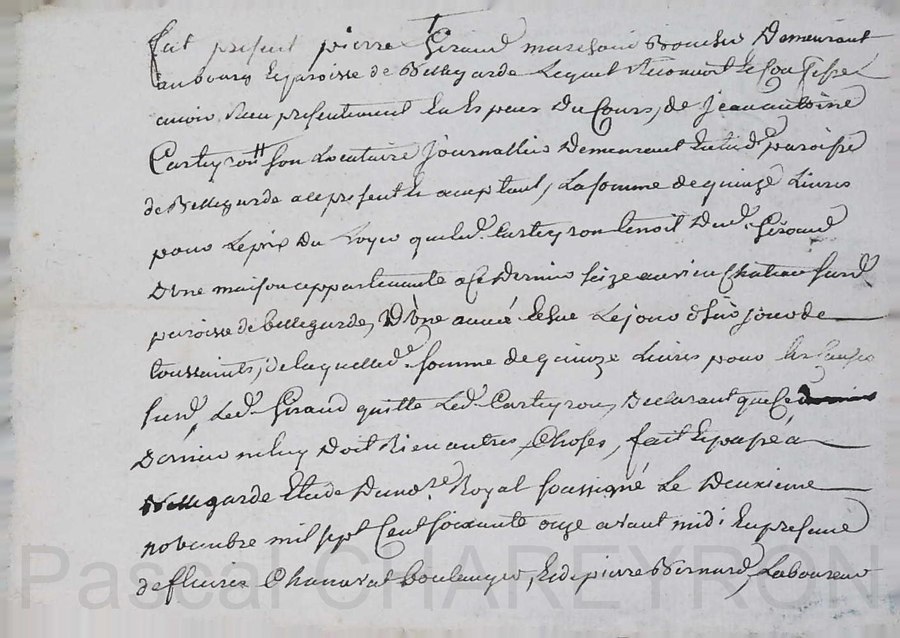 fut present pierre Giraud marchand Boucher Demeurant
au bourg & paroisse de Bellegarde Lequel Reconnoit & confesse
avoir Receu presentement En Especes Du Cours, de Jean antoine
Carteyron son Locataire Journallier Demeurant En lad. paroisse
de Bellegarde a ce present & acceptant, La somme de quinze Livres
pour Le prix Du Loyer que led. Carteyron tenoit Dud. Giraud
D'une maison appartenante a Ce Dernier size au vieu Château susd.
paroisse de bellegarde, D'une année Echue Le jour d'hier jour de
toussaints, de laquelle de. somme de quinze Livres pour les causes
susd. Led. Giraud quitte Led. Carteyron, Declarant que Ce
Dernier ne luy Doit Rien autres Choses, fait & passé a
Bellegarde Etude Du nore. Royal soussigné Le Deuxieme
novembre mil sept Cent soixante onze avant midi En presence
de fleurie Chanavat boulanger, & de pierre Bernard, Laboureur
Pascal CHAREYRON